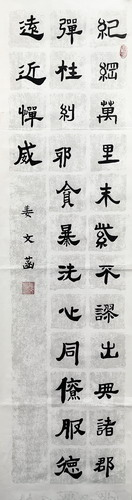 紀綱萬里末紫不謬出典諸郡
彈枉糾邪貪暴洗心同僚服德
遠近憚威
姜文菡